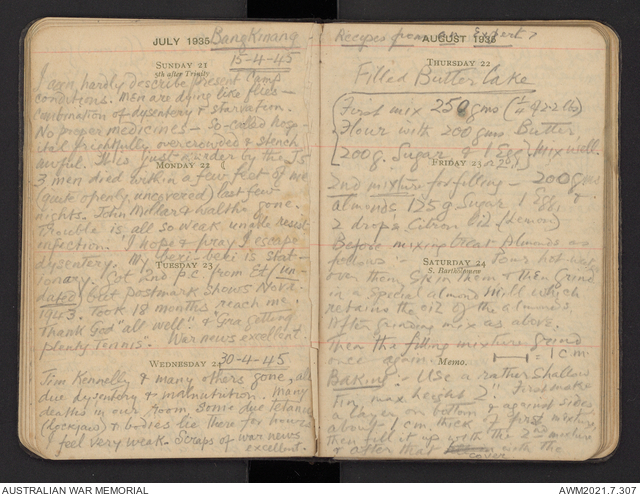 JULY 1935 Bangkinang
SUNDAY 21 15-4-45
5th after Trinity
I can hardly describe present camp
conditions. Men are dying like flies –
combination of dysentery & starvation.
No proper medicines – so-called hosp-
ital frightfully overcrowded & stench
awful. It is just murder by the Js
MONDAY 22
3 men died within a few feet of me
(quite openly, uncovered) last few
nights. John Miller & gone.
Trouble is all so weak unable resist
infection. I hope & pray I escape
dysentery. My beri-beri is stat-
TUESDAY 23
ionary. Got 2nd p.c. from Et/ (un-
dated) but postmark shows Nov.
1943. Took 18 months reach me.
Thank God "all well" & " getting
plenty Tennis". War news excellent
WEDNESDAY 24 30-4-45
Jim Kennelly & many others gone, all
due dysentery & malnutrition. Many
deaths in our room, some due tetanus
(lockjaw) & bodies lie there for hours
I feel very weak. Scraps of war news
excellent.
Recipes from an Expert?
AUGUST 1935
THURSDAY 22
Filled Butter Cake
First mix 250 gms (¼ 
Flour with 200 gms. Butter
200 g. Sugar & 1 Egg. Mix well.
FRIDAY 23
2nd mixture for filling – 200 gms
almonds 125 g. Sugar 1 Egg,
2 drops Citron Oil (Lemon)
Before mixing treat Almonds as
follows :- Pour hot water
SATURDAY 24
S. Bartholomew
over them, skin them & then Grind
in a Special almond mill which
retains the oil of the almonds.
After grinding mix as above.
Then the filling mixture grind
once again. = 1 cm
MEMO.
Baking :- Use a rather shallow
Tin, max. height 2". First make
a layer on bottom & against sides
about 1 cm. thick of first mixture,
then fill it up with the 2nd mixture
& after that cover with the
AUSTRALIAN WAR MEMORIAL
AWM2021.7.307